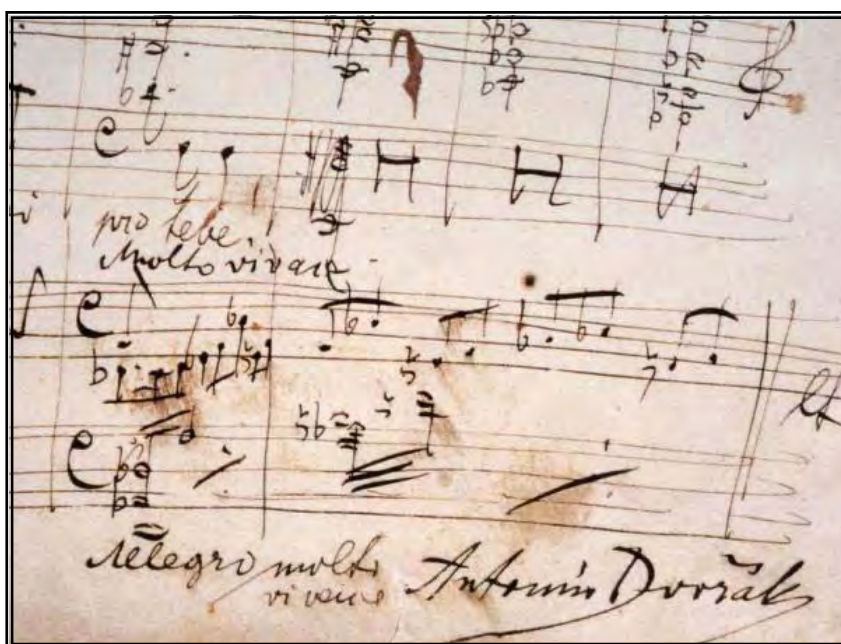 pro tebe,
Molto vivace
Allegro molto
vivace
Antonín Dvořák